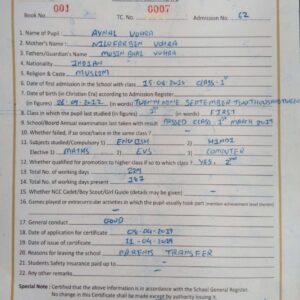 Book No. 001 TC. No. 0007 Admission No. 62
1 Name of Pupil : AYNAL VOHRA
2. Mother's Name : NILOFARBEN VOHRA
3. Father's/Guardian's Name MOSIN BHAI VOHRA
4. Nationality INDIAN
5. Religion & Caste MUSLIM
6. Date of first admission in the School with class 15-04-2017 CLASS-1st
7. Date of Birth (in Christian Era) according to Admission Register
(in figures) 26.09.2012 (in words) SEPTEMBER
8. Class in which the pupil last studied (in figures) 1st (in words) FIRST
9. School/Board Annual examination last taken with result PASSED CLASS 1st MARCH 2019
10. Whether failed, if so once/twice in the same class :
11. Subjects studied/Compulsory 1) ENGLISH HINDI
Elective 1) MATHS EVS COMPUTER
12. Whether qualified for promotion to higher class if so to which class : YES, 2nd
13. Total No. of working days 229
14. Total No. of working days present 187
15. Whether NCC Cadet/Boy Scout/Girl Guide (details may be given)
16. Games played or extracurricular activities in which the pupil usually took part (mention achievement level therein)
17. General conduct GOOD
18. Date of application for certificate 08-04-2019
19. Date of issue of certificate 11-04-2019
20. Reasons for leaving the school PARENTS TRANSFER
21. Students Safety Insurance paid up to
22. Any other remarks
Special Note : Certified that the above information is in accordance with the School General Register.
No change in this Certificate shall be made except by authority issuing it.